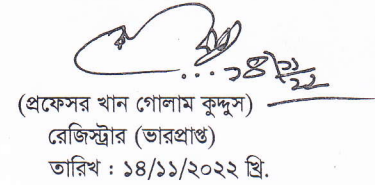 ১৪/১১/২২
(প্রফেসর খান গোলাম কুদ্দুস)
রেজিস্ট্রার (ভারপ্রাপ্ত)
তারিখ : ১৪/১১/২০২২ খ্রি.